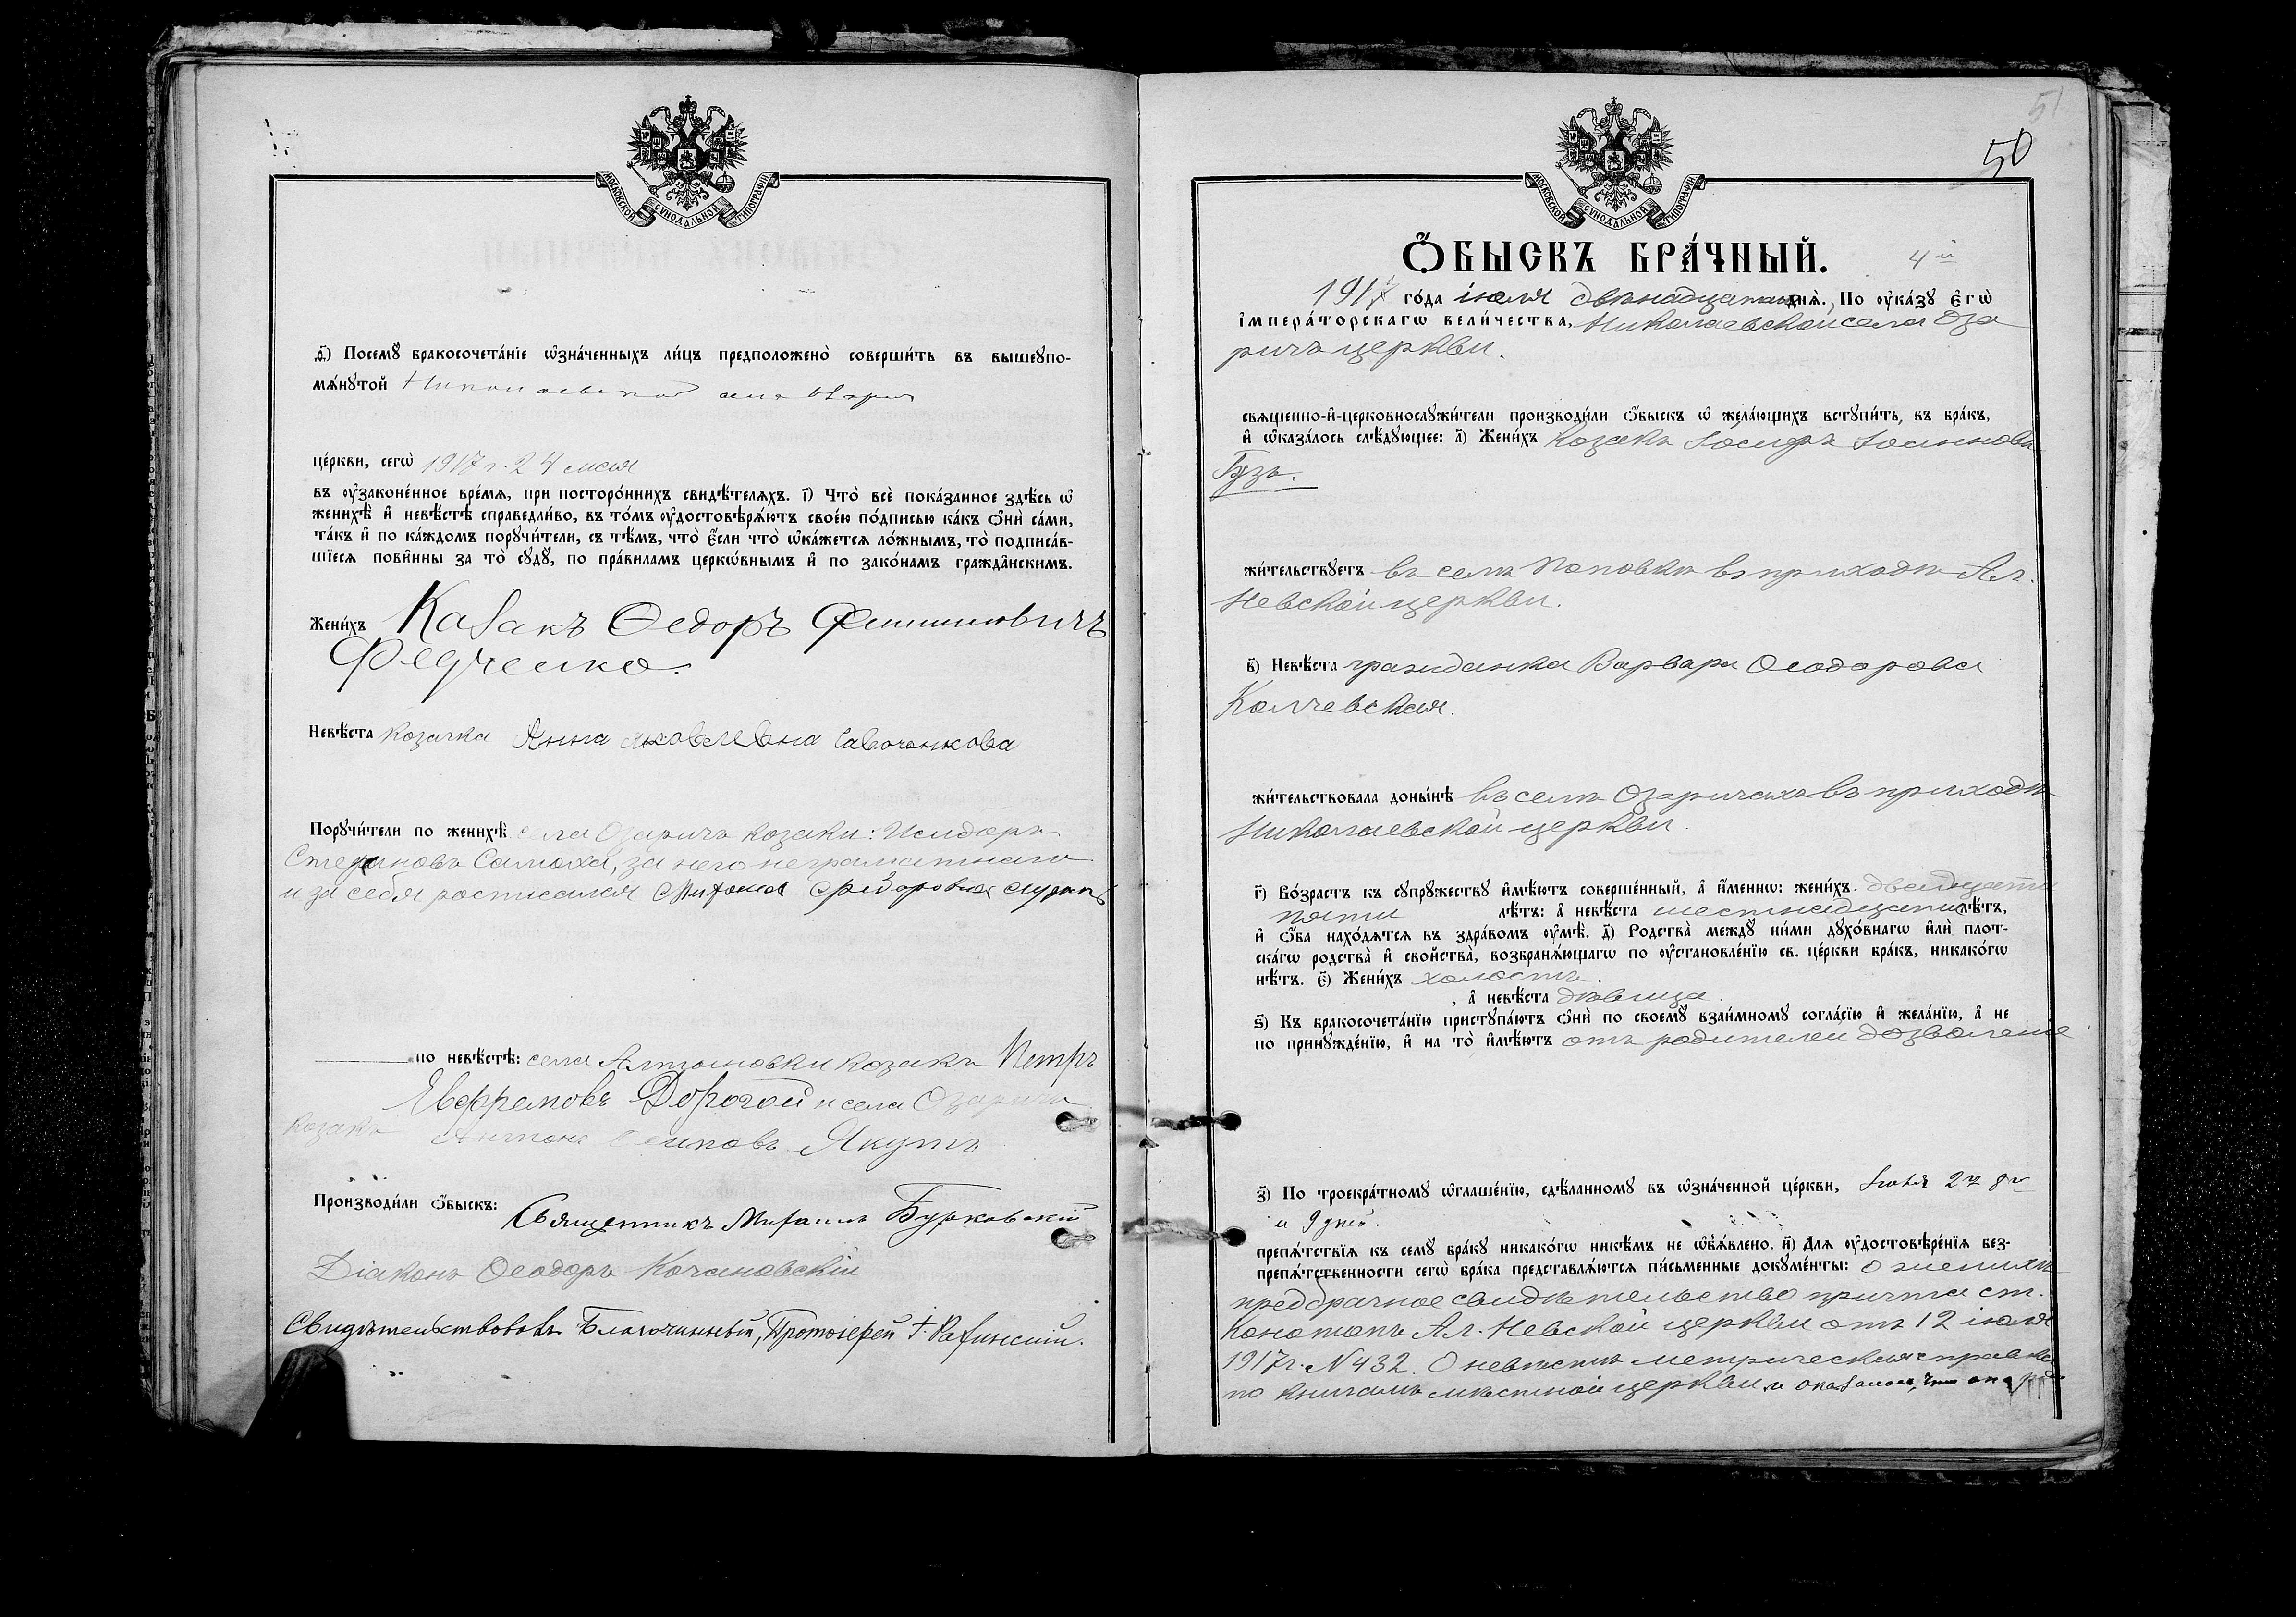 МОСКОВСКОЙ СѴНОДАЛЬНОЙ ТИПОГРАФІИ
ѳ҃) Посемꙋ̀ бракосочета́нїе ѡ҆зна́ченныхъ ли́цъ предположено̀ соверши́ть въ вышеꙋпо-
мѧ́нꙋтой Николаевской села Озаричъ
це́ркви, сегѡ̀ 1917 г. 24 мая
въ ᲂу҆законе́нное вре́мѧ, при посторо́ннихъ свидѣ́телѧхъ. і҃) Что̀ всѐ пока́занное здѣ́сь ѡ҆
женихѣ̀ и҆ невѣ́стѣ справедли́во, въ то́мъ ᲂу҆достовѣрѧ́ютъ свое́ю по́дписью ка́къ ѻ҆нѝ са́ми,
та́къ и҆ по ка́ждомъ порꙋчи́тели, съ тѣ́мъ, что̀ є҆́сли что̀ ѡ҆ка́жетсѧ ло́жнымъ, то̀ подписа́в-
шїесѧ пови́нны за то̀ сꙋдꙋ̀, по пра́виламъ церкѡ́внымъ и҆ по зако́намъ гражда́нскимъ.
Жени́хъ Казакъ Ѳедоръ Филипповичъ
Федченко.
Невѣ́ста козачка Анна Яковлевна Савочонкова
Порꙋчи́тели по женихѣ̀ села Озаричъ козаки: Исидоръ
Стефановъ Самоха, за него неграматнаго
и за себя росписался
по невѣ́стѣ: села Алтыновки козакъ Петръ
Евфремовъ Дорогой и села Озаричъ
козакъ Антонъ Осиповъ Якутъ
Производи́ли ѻ҆́быскъ: Священникъ Михаилъ Бурковскій
Діаконъ Ѳеодоръ Кочановскій
Свидѣтельствовалъ Благочинный, Протоіерей
50
51
МОСКОВСКОЙ СѴНОДАЛЬНОЙ ТИПОГРАФІИ
Ѻ҆́БЫСКЪ БРА́ЧНЫЙ. 4й
1917 го́да іюля двѣнадцатаго днѧ̀. По ᲂу҆ка́зꙋ Є҆гѡ̀
І҆мпера́торскагѡ вели́чества, Николаевской села Оза
ричъ церкви.
свѧще́нно-и҆-церковнослꙋжи́тели производи́ли ѻ҆́быскъ ѡ҆ жела́ющихъ встꙋпи́ть въ бра́къ,
и҆ ѡ҆каза́лось слѣ́дꙋющее: а҃) Жени́хъ козакъ Іосифъ Іоанновъ
Гузъ.
жи́тельствꙋетъ въ селѣ Поповкѣ въ приходѣ Ал.
Невской церкви.
в҃) Невѣ́ста гражданка Варвара Ѳеодорова
Колчевская.
жи́тельствовала доны́нѣ въ селѣ Озаричахъ въ приходѣ
Николаевской церкви.
г҃) Во́зрастъ къ сꙋпрꙋ́жествꙋ и҆мѣ́ютъ соверше́нный, а҆ и҆́меннѡ: жени́хъ двадцати
пяти лѣ́тъ: а҆ невѣ́ста шестнадцати лѣ́тъ,
и҆ ѻ҆́ба нахо́дѧтсѧ въ здра́вомъ ᲂу҆мѣ̀. д҃) Родства̀ междꙋ ни́ми дꙋхо́внагѡ и҆лѝ плот-
ска́гѡ родства̀ и҆ сво́йства, возбранѧ́ющагѡ по ᲂу҆становле́нїю св. це́ркви бра́къ, никако́гѡ
нѣ́тъ. є҃) Жени́хъ холостъ.
, а҆ невѣ́ста дѣвица.
ѕ҃) Къ бракосочета́нїю пристꙋпа́ютъ ѻ҆нѝ по своемꙋ̀ взаи́мномꙋ согла́сїю и҆ жела́нїю, а҆ не
по принꙋжде́нїю, и҆ на то̀ и҆мѣ́ютъ отъ родителей дозволеніе
з҃) По троекра́тномꙋ ѡ҆глаше́нїю, сдѣ́ланномꙋ въ ѡ҆зна́ченной це́ркви, Іюля 2го 8го
и 9 дней.
препѧ́тствїѧ къ семꙋ̀ бра́кꙋ никако́гѡ никѣ́мъ не ѡ҆б̾ѧ́влено. и҃) Длѧ ᲂу҆достовѣре́нїѧ без-
препѧ́тственности сегѡ̀ бра́ка представлѧ́ютсѧ пи́сьменные докꙋме́нты: О женихѣ
предбрачное свидѣтельство причта ст.
Конотопъ Ал. Невской церкви отъ 12 іюля
1917 г. N 432. О невѣстѣ метрическая справка
по книгамъ мѣстной церкви и оказалось, что она